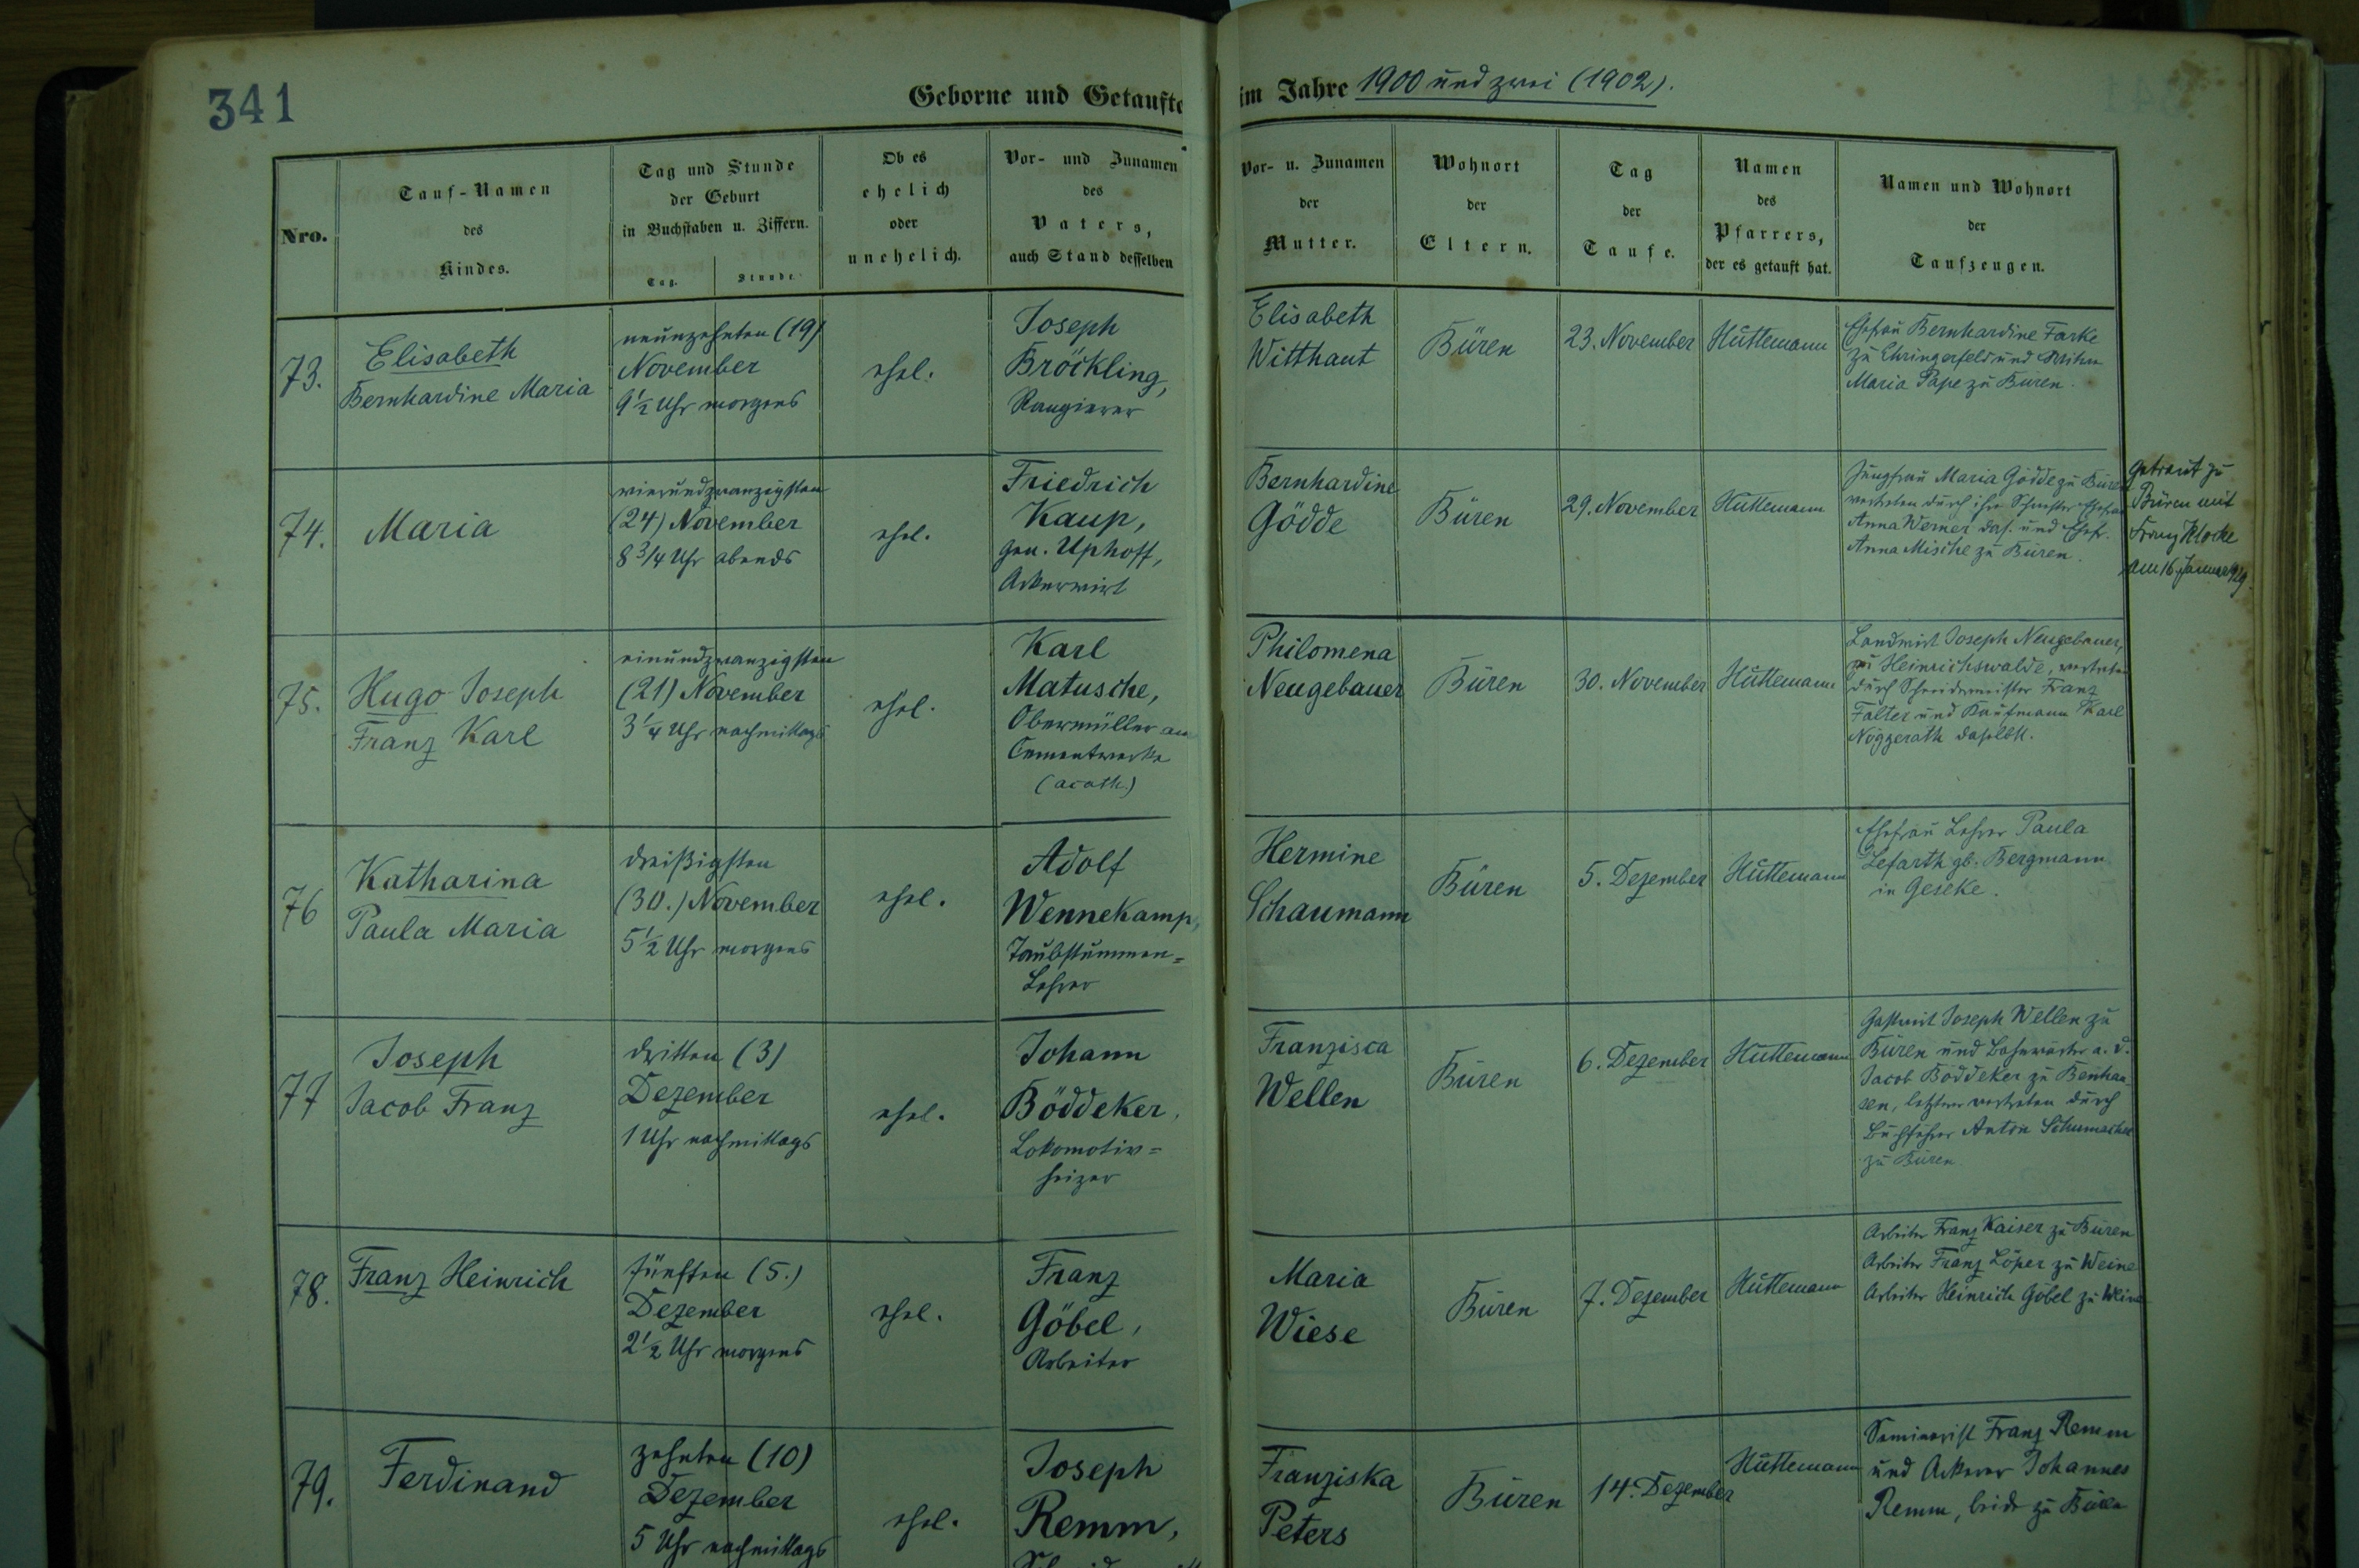 341
Geborne und Getaufte im Jahre 1900 und zwei (1902).
Nro.
Tauf-Namen
des
Kindes.
Tag und Stunde
der Geburt
in Buchstaben u. Ziffern.
Tag.
Stunde.
Ob es
ehelich
oder
unehelich.
Vor- und Zunamen
des
Vaters,
auch Stand desselben
Vor- u. Zunamen
der
Mutter.
Wohnort
der
Eltern.
Tag
der
Taufe.
Namen
des
Pfarrers,
der es getauft hat.
Namen und Wohnort
der
Taufzeugen.
73.
Elisabeth
Bernhardine Maria
neunzehnten (19)
November
9 1/2 Uhr morgens
ehel.
Joseph
Bröckling,
Rangierer
Elisabeth
Witthaut
Büren
23. November
Hüttemann
Ehefrau Bernhardine Farke
zu Ehringerfeld und
Maria Pape zu Büren.
74.
Maria
vierundzwanzigsten
(24) November
8 3/4 Uhr abends
ehel.
Friedrich
Kaup,
gen. Uphoff,
Ackerwirt
Bernhardine
Gödde
Büren
29. November
Hüttemann
Jungfrau Maria Gödde zu Büren
vertreten durch ihre Schwester Ehefrau
Anna Werner das. und Ehefr.
Anna Mische zu Büren.
Getraut zu
Büren mit
Franz Klocke
am 16. Januar 1929.
75.
Hugo Joseph
Franz Karl
einundzwanzigsten
(21) November
3 1/4 Uhr nachmittags
ehel.
Karl
Matusche,
Obermüller am
Cementwerke
(acath.)
Philomena
Neugebauer
Büren
30. November
Hüttemann
Landwirt Joseph Neugebauer,
zu Heinrichswalde, vertreten
durch Schneidermeister Franz
Falter und Kaufmann Karl
Nöggerath daselbst.
76
Katharina
Paula Maria
dreißigsten
(30.) November
5 1/2 Uhr morgens
ehel.
Adolf
Wennekamp,
Taubstummen=
Lehrer
Hermine
Schaumann
Büren
5. Dezember
Hüttemann
Ehefrau Lehrer Paula
Lefarth gb. Bergmann
in Geseke.
77
Joseph
Jacob Franz
dritten (3)
Dezember
1 Uhr nachmittags
ehel.
Johann
Böddeker,
Lokomotiv=
heizer
Franzisca
Wellen
Büren
6. Dezember
Hüttemann
Gastwirt Joseph Wellen zu
Büren und Bahnwärter a. D.
Jacob Böddeker zu Benhau-
sen, letzterer vertreten durch
Buchführer Anton Schumacher
zu Büren
78.
Franz Heinrich
fünften (5.)
Dezember
2 1/2 Uhr morgens
ehel.
Franz
Göbel,
Arbeiter
Maria
Wiese
Büren
7. Dezember
Hüttemann
Arbeiter Franz Kaiser zu Büren
Arbeiter Franz Löper zu Weine
Arbeiter Heinrich Göbel zu Weine
79.
Ferdinand
zehnten (10)
Dezember
5 Uhr nachmittags
ehel.
Joseph
Remm,
Franziska
Peters
Büren
14. Dezember
Hüttemann
Seminarist Franz Remm
und Ackerer Johannes
Remm, beide zu Büren